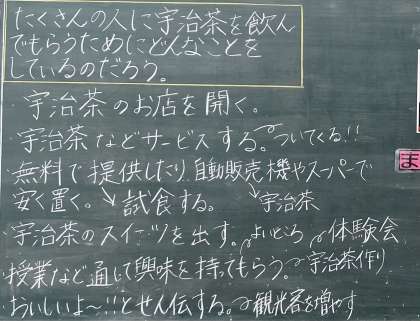 たくさんの人に宇治茶を飲ん
でもらうためにどんなことを
しているのだろう。
・宇治茶のお店を開く。
・宇治茶などサービスする。ついてくる!!
・無料で提供したり自動販売機やスーパーで
安く置く。↘試食する。↘宇治茶
宇治茶のスイーツを出す。よいところ 体験会
授業など通して興味を持ってもらう。宇治茶作り
おいしいよ〜!!とせん伝する。観光客を増やす
ま